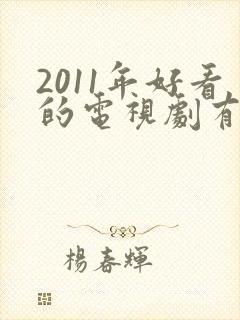 2011年好看
的電視劇有
楊春輝